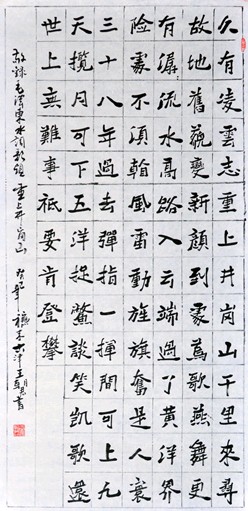 久有凌雲志重上井岗山千里來尋
故地舊貌變新顏到處鶯歌燕舞更
有潺流水高路入云端過了黃洋界
险處不須風雷動旌旗奮是人寰
三十八年過去彈指一揮間可上九
天攬月可下五洋捉鱉談笑凱歌還
世上無難事祇要肯登攀
敬錄毛澤東水調歌頭重上井崗山